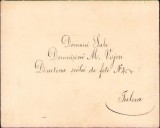 Domniei Sale
Domnișoarei M. Vișan
Directoarea școalei de fete No 4
Tulcea